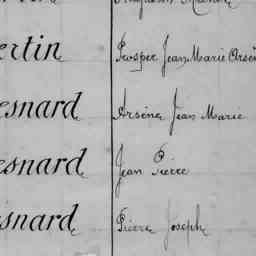 ertin Prosper Jean Marie Arsèn
esnard Arsène Jean Marie
esnard Jean Pierre
esnard Pierre Joseph